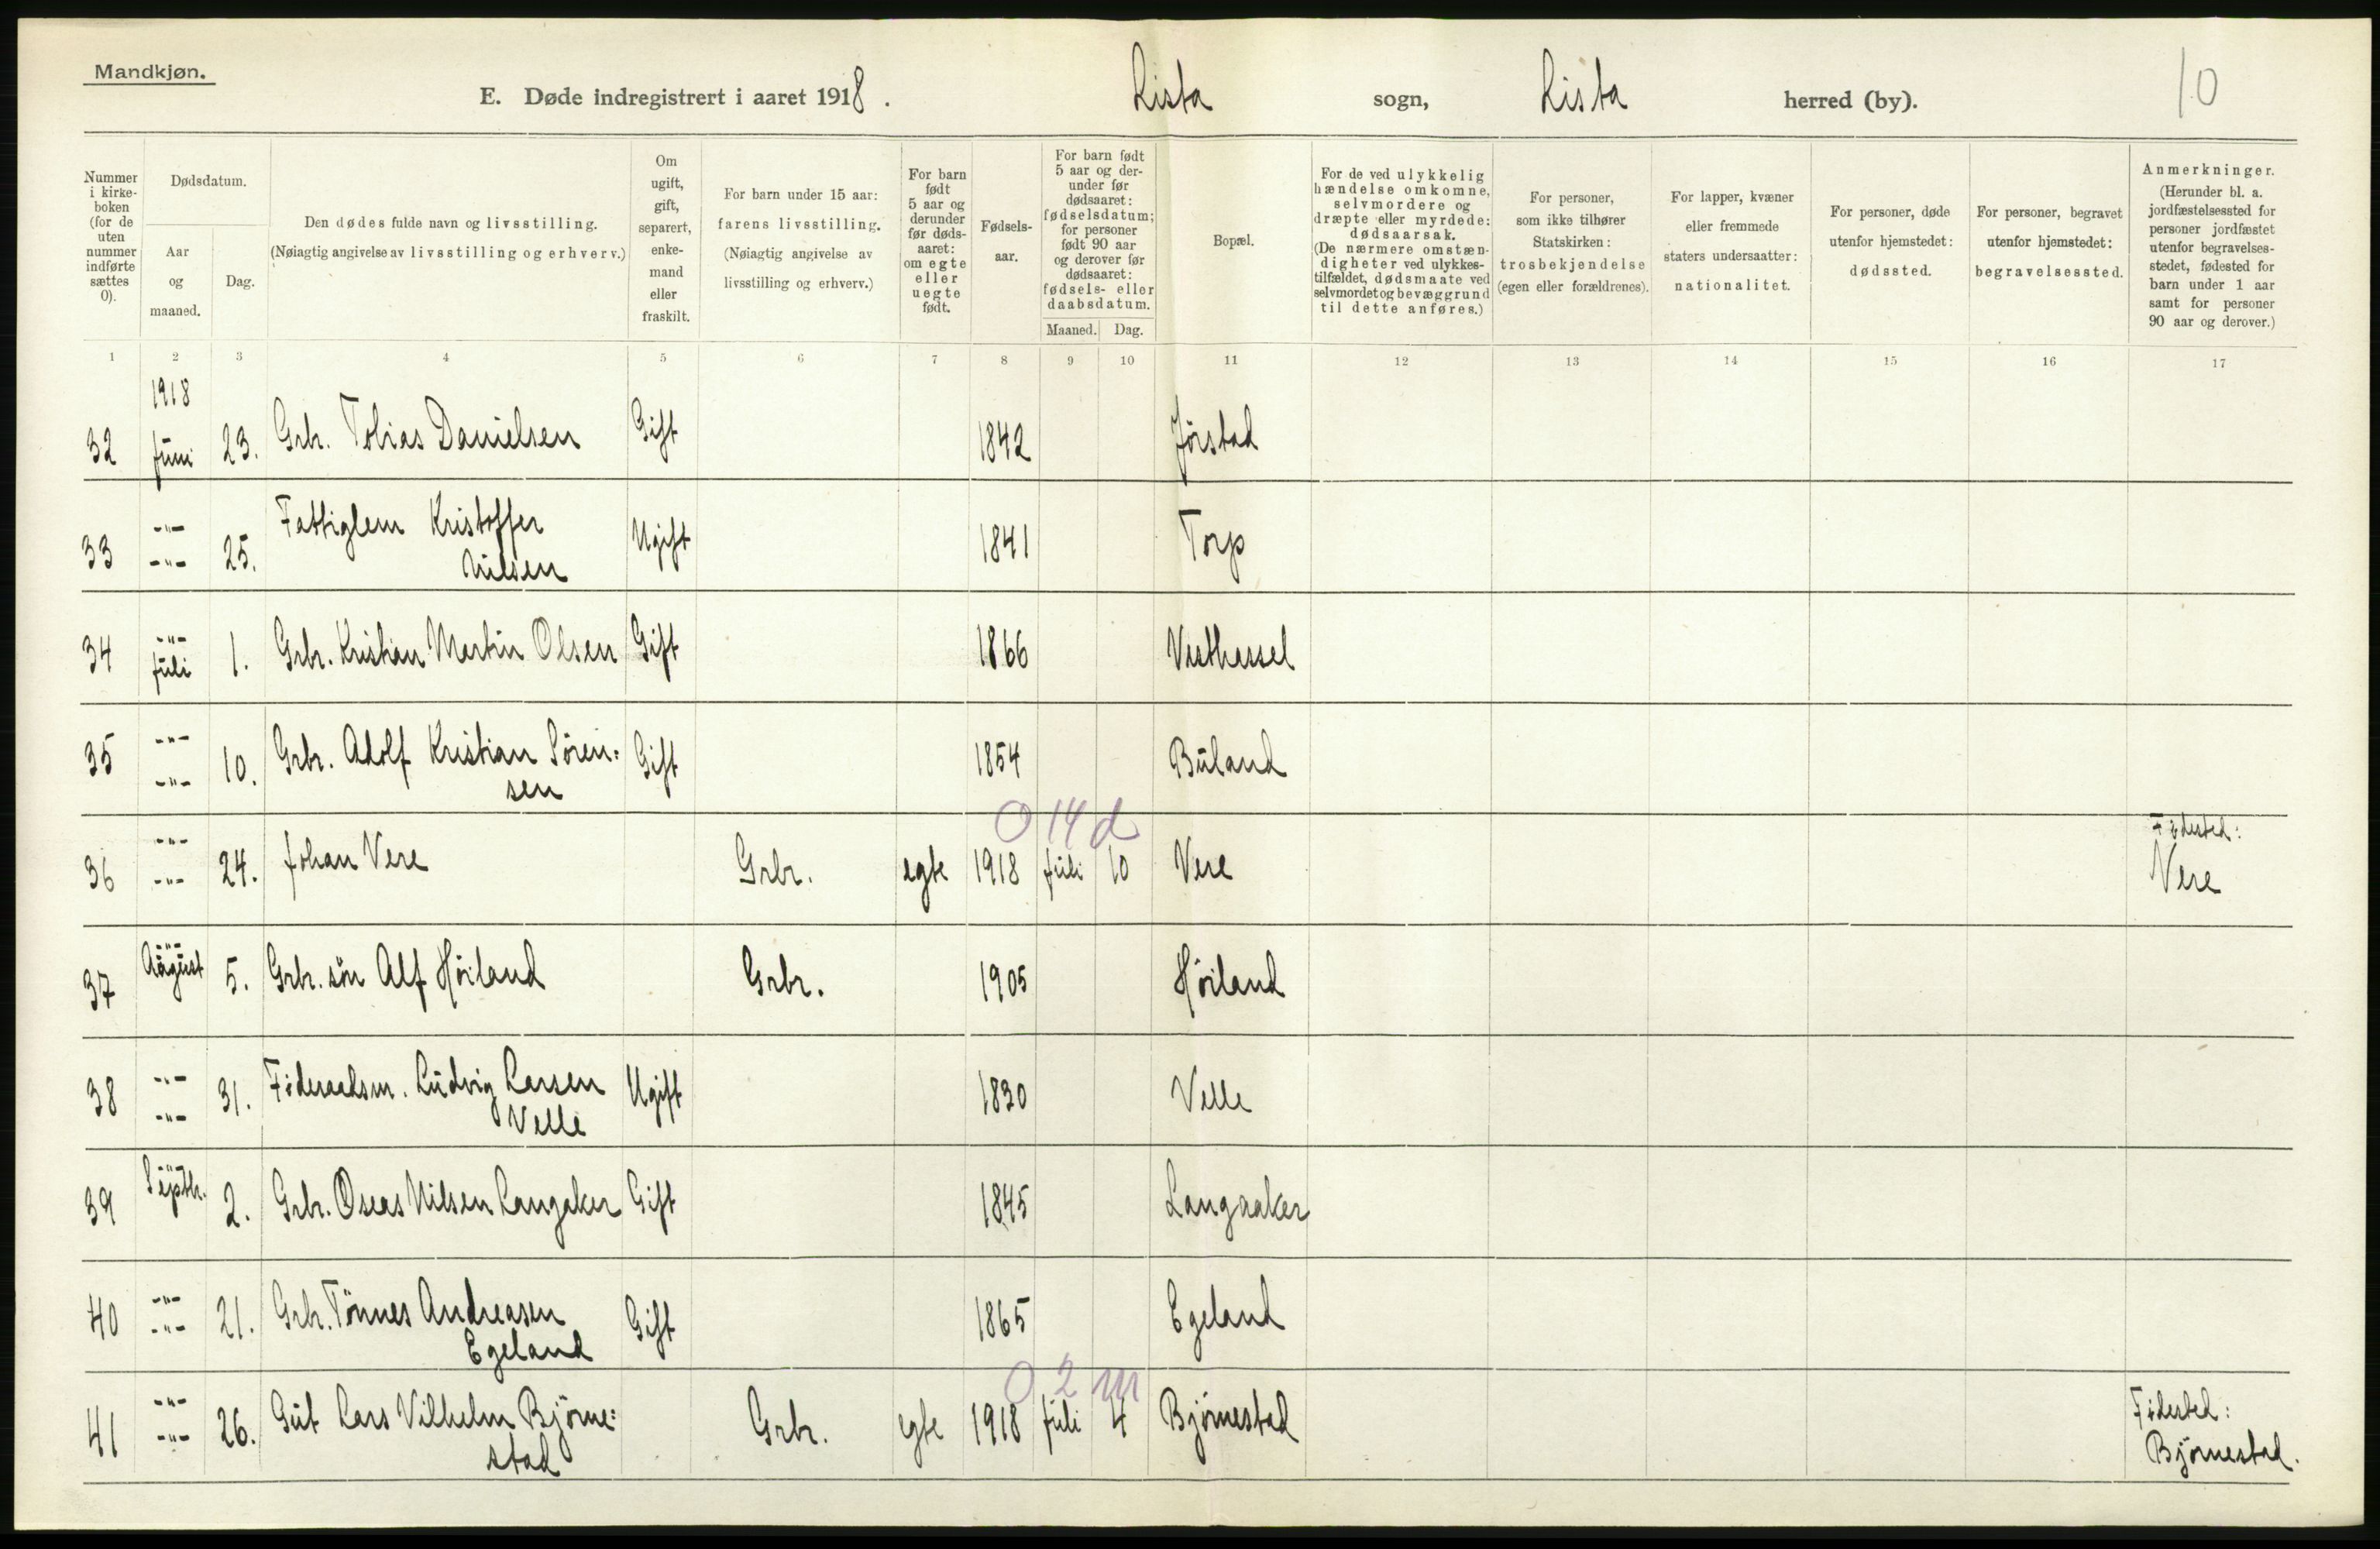 Mandkjøn.
E. Døde indregistrert i aaret 1918. Lista sogn, Lista herred (by). 10
Nummer i kirke-boken (for de uten nummer indførte sættes 0).
Dødsdatum.
Aar og maaned.
Dag.
Den dødes fulde navn og livsstilling.
(Nøiagtig angivelse av livsstilling og erhverv.)
Om ugift, gift, separert, enke-mand eller fraskilt.
For barn under 15 aar:
farens livsstilling.
(Nøiagtig angivelse av livsstilling og erhverv.)
For barn født 5 aar og derunder før døds-aaret: om egte eller uegte født.
Fødsels-aar.
For barn født 5 aar og der-under før dødsaaret: fødselsdatum; for personer født 90 aar og derover før dødsaaret: fødsels- eller daabsdatum.
Maaned. Dag.
Bopæl.
For de ved ulykkelig hændelse omkomne, selvmordere og dræpte eller myrdede: dødsaarsak.
(De nærmere omstæn-digheter ved ulykkes-tilfældet, dødsmaate ved selvmordet og bevæggrund til dette anføres.)
For personer, som ikke tilhører Statskirken: trosbekjendelse (egen eller forældrenes).
For lapper, kvæner eller fremmede staters undersaatter: nationalitet.
For personer, døde utenfor hjemstedet: dødssted.
For personer, begravet utenfor hjemstedet: begravelsessted.
Anmerkninger.
(Herunder bl. a. jordfæstelsessted for personer jordfæstet utenfor begravelses-stedet, fødested for barn under 1 aar samt for personer 90 aar og derover.)
1 2 3 4 5 6 7 8 9 10 11 12 13 14 15 16 17
1918
32 Juni 23. Grbr. Tobias Danielsen Gift 1842 Jørstad
33 -"- -"- 25. Fattiglem Kristoffer Ugift 1841 Torp
Nilsen
34 -"- Juli 1. Grbr. Kristian Martin Olsen Gift 1866 Vesthassel
35 -"- -"- 10. Grbr. Adolf Kristian Sören= Gift 1854 Büland
sen
0 14 d
36 -"- -"- 24. Johan Vere Grbr. egte 1918 Juli 10 Vere Födested:
Vere
37 -"- August 5. Grbr. sön Alf Höiland Grbr. 1905 Höiland
38 -"- -"- 31. Föderaadsm. Ludvig Larsen Ugift 1830 Velle
Velle
39 -"- Septbr. 2. Grbr. Oseas Nilsen Langaker Gift 1845 Langaaker
40 -"- -"- 21. Grbr. Tönnes Andreasen Gift 1865 Egeland
Egeland
0 2 m
41 -"- -"- 26. Gut Lars Vilhelm Björne= Grbr. egte 1918 Juli 4 Bjørnestad Födested:
stad Björnestad.